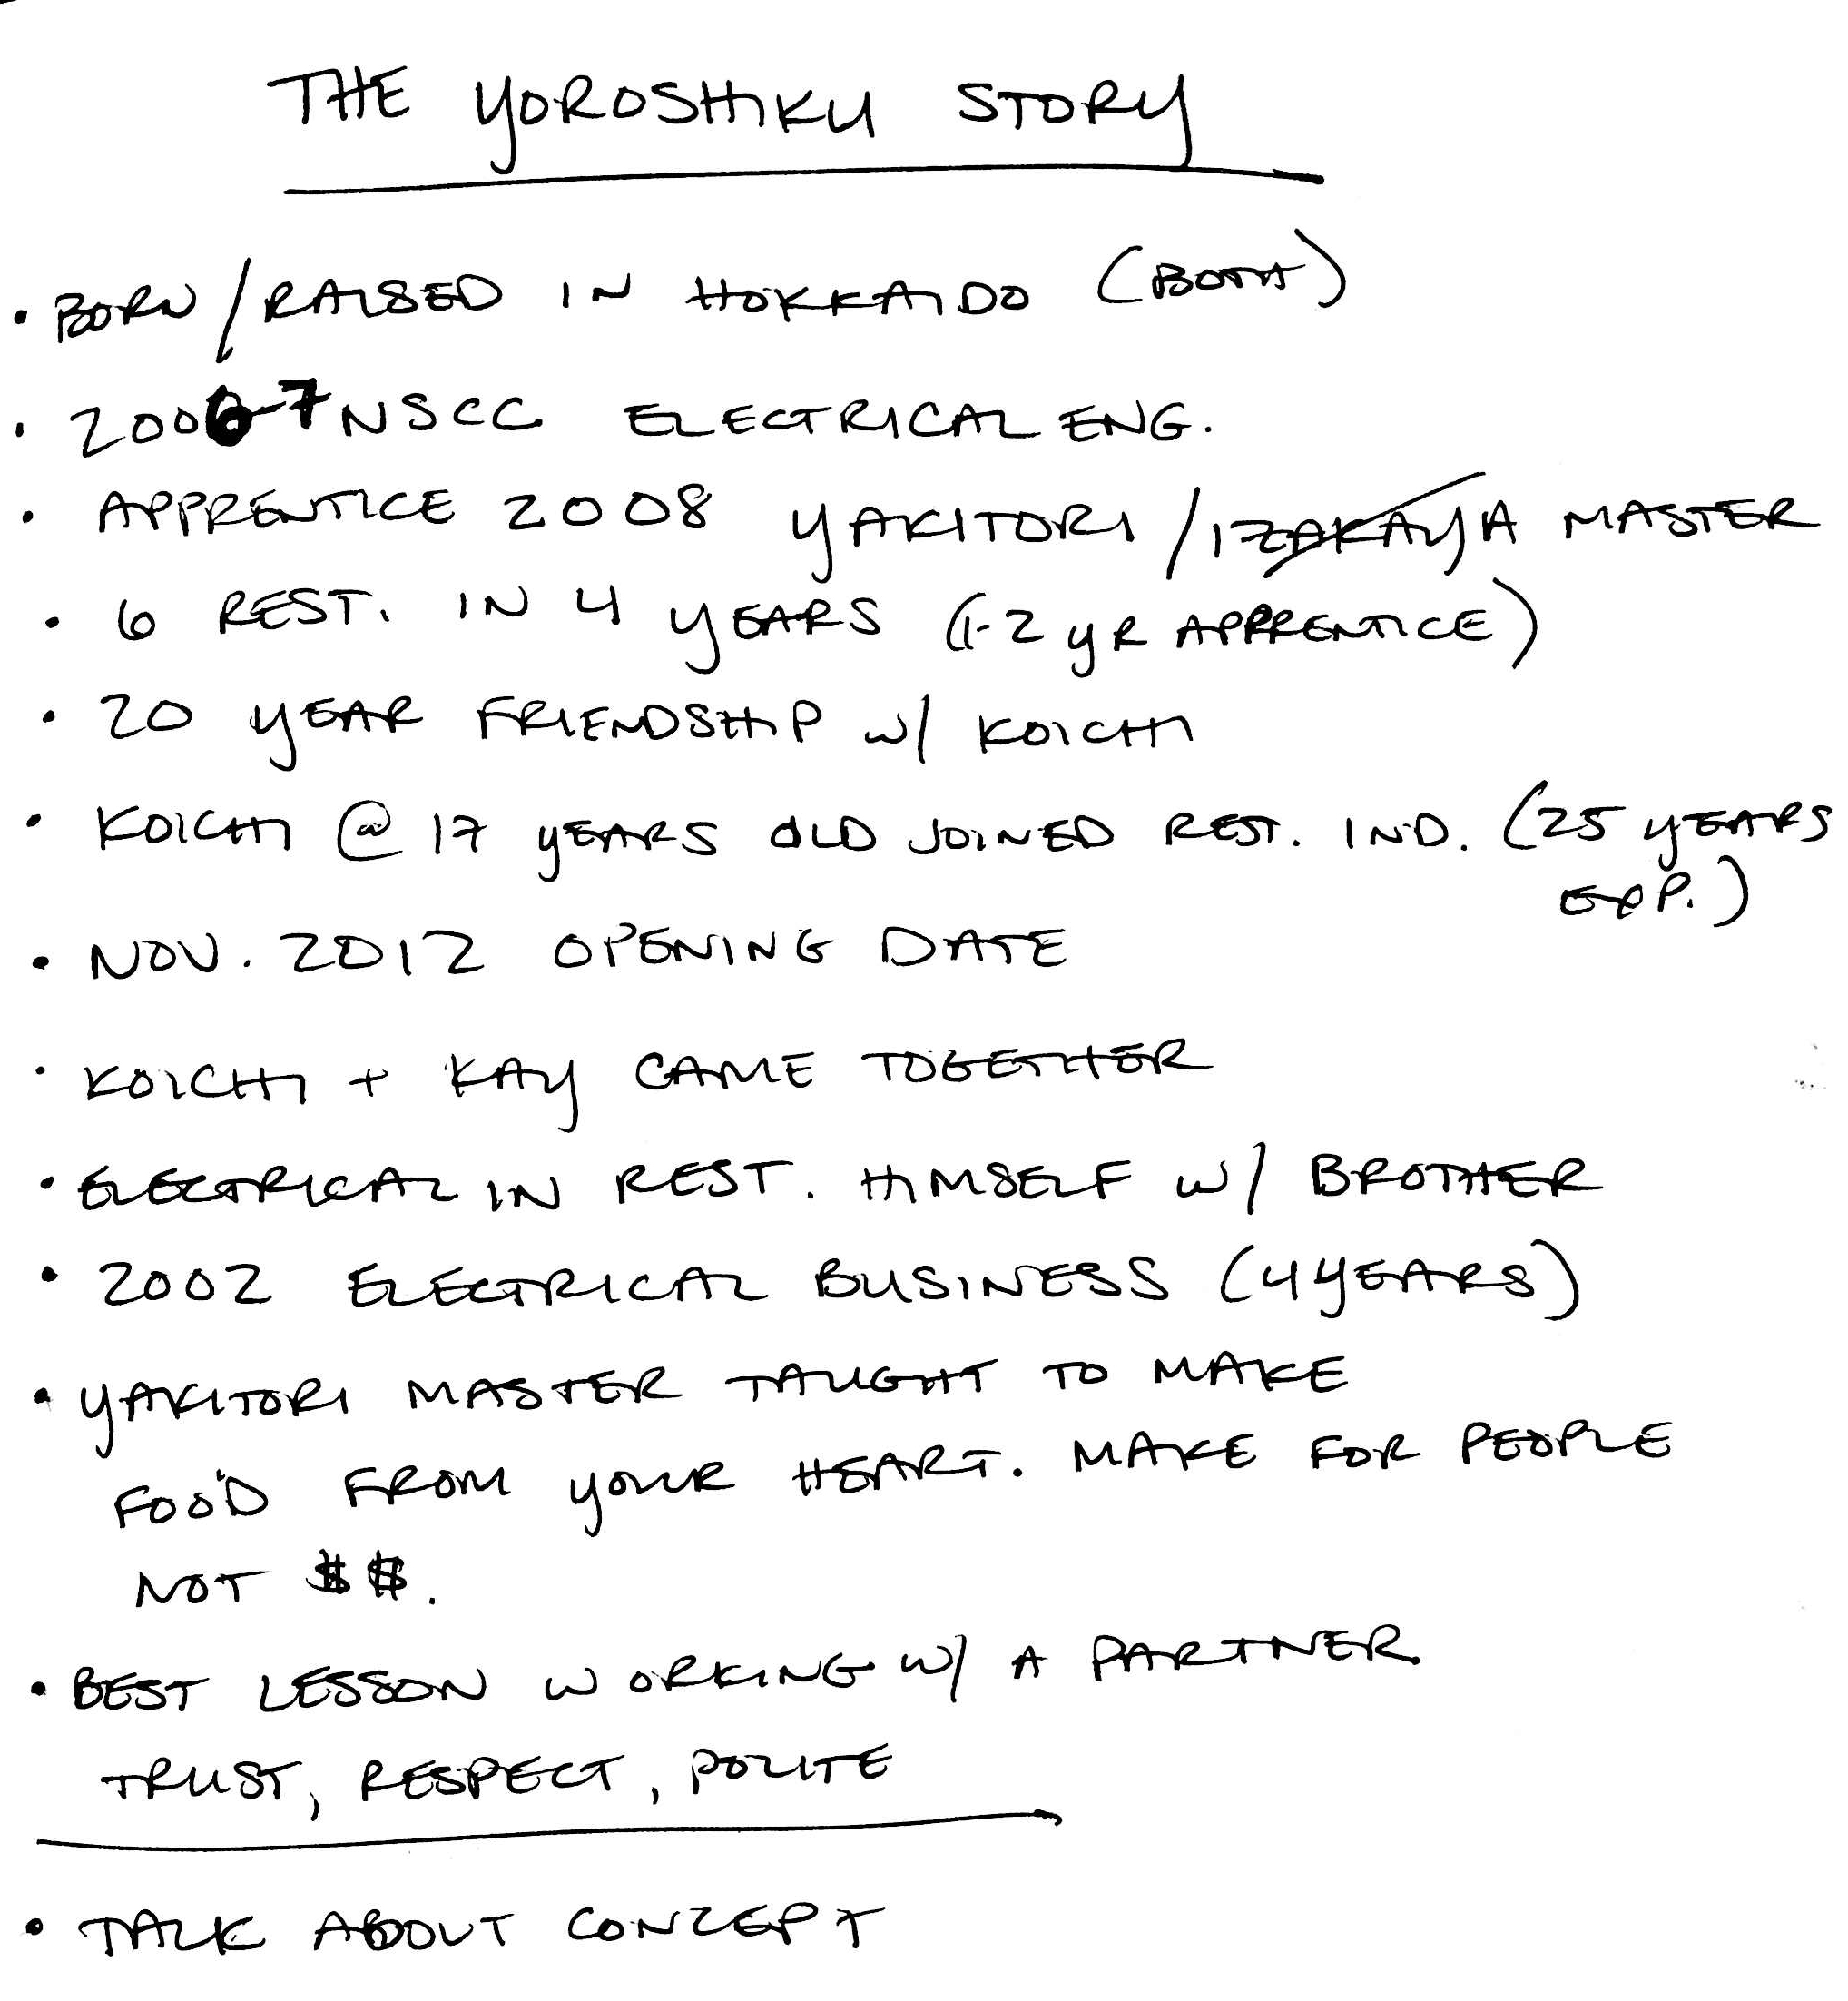 THE YOROSHIKU STORY
• BORN/RAISED IN HOKKAIDO (BOTH)
• 2006-7 NSCC ELECTRICAL ENG.
• APPRENTICE 2008 YAKITORI/IZAKAYA MASTER
• 6 REST. IN 4 YEARS (1-2 YR APPRENTICE)
• 20 YEAR FRIENDSHIP W/ KOICHI
• KOICHI @ 17 YEARS OLD JOINED REST. IND. (25 YEARS
EXP.)
• NOV. 2012 OPENING DATE
• KOICHI + KAY CAME TOGETHER
• ELECTRICAL IN REST. HIMSELF W/ BROTHER
• 2002 ELECTRICAL BUSINESS (4 YEARS)
• YAKITORI MASTER TAUGHT TO MAKE
FOOD FROM YOUR HEART. MAKE FOR PEOPLE
NOT $$.
• BEST LESSON WORKING W/ A PARTNER
TRUST, RESPECT, POLITE
• TALK ABOUT CONCEPT